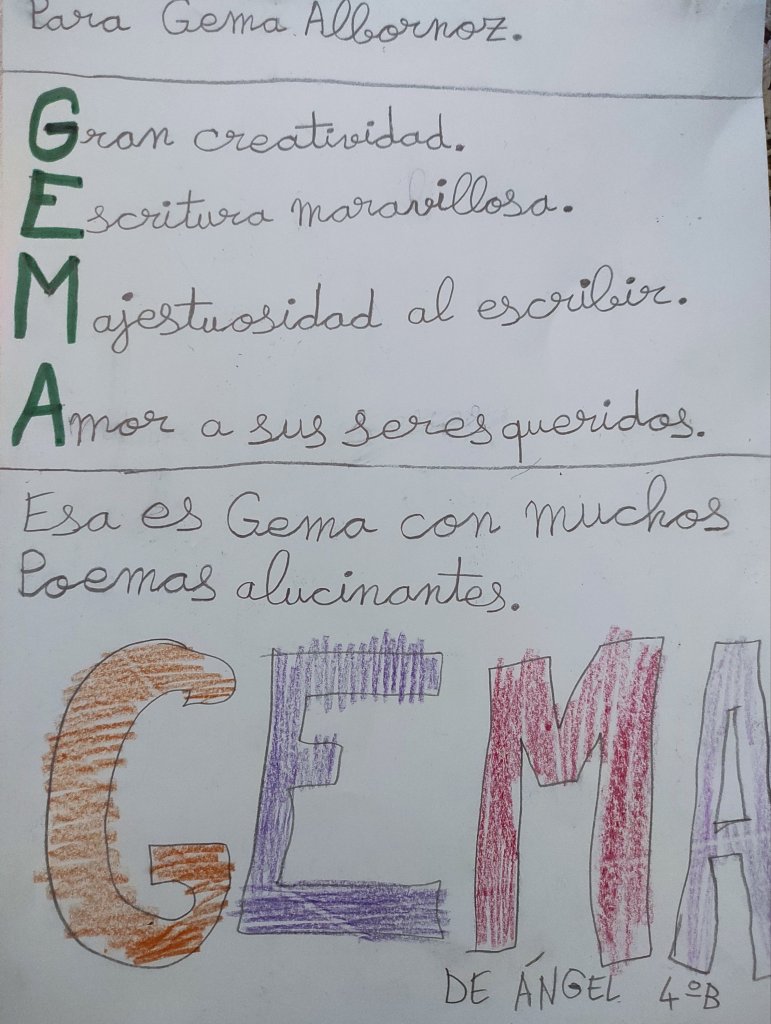 Para Gema Albornoz.
Gran creatividad.
Escritura maravillosa.
Majestuosidad al escribir.
Amor a sus seres queridos.
Esa es Gema con muchos
Poemas alucinantes.
GEMA
DE ÁNGEL 4ºB